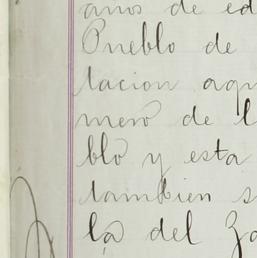 años de ed
Pueblo de
tacion aqu
mero de l
blo y esta
tambien s
la del Za